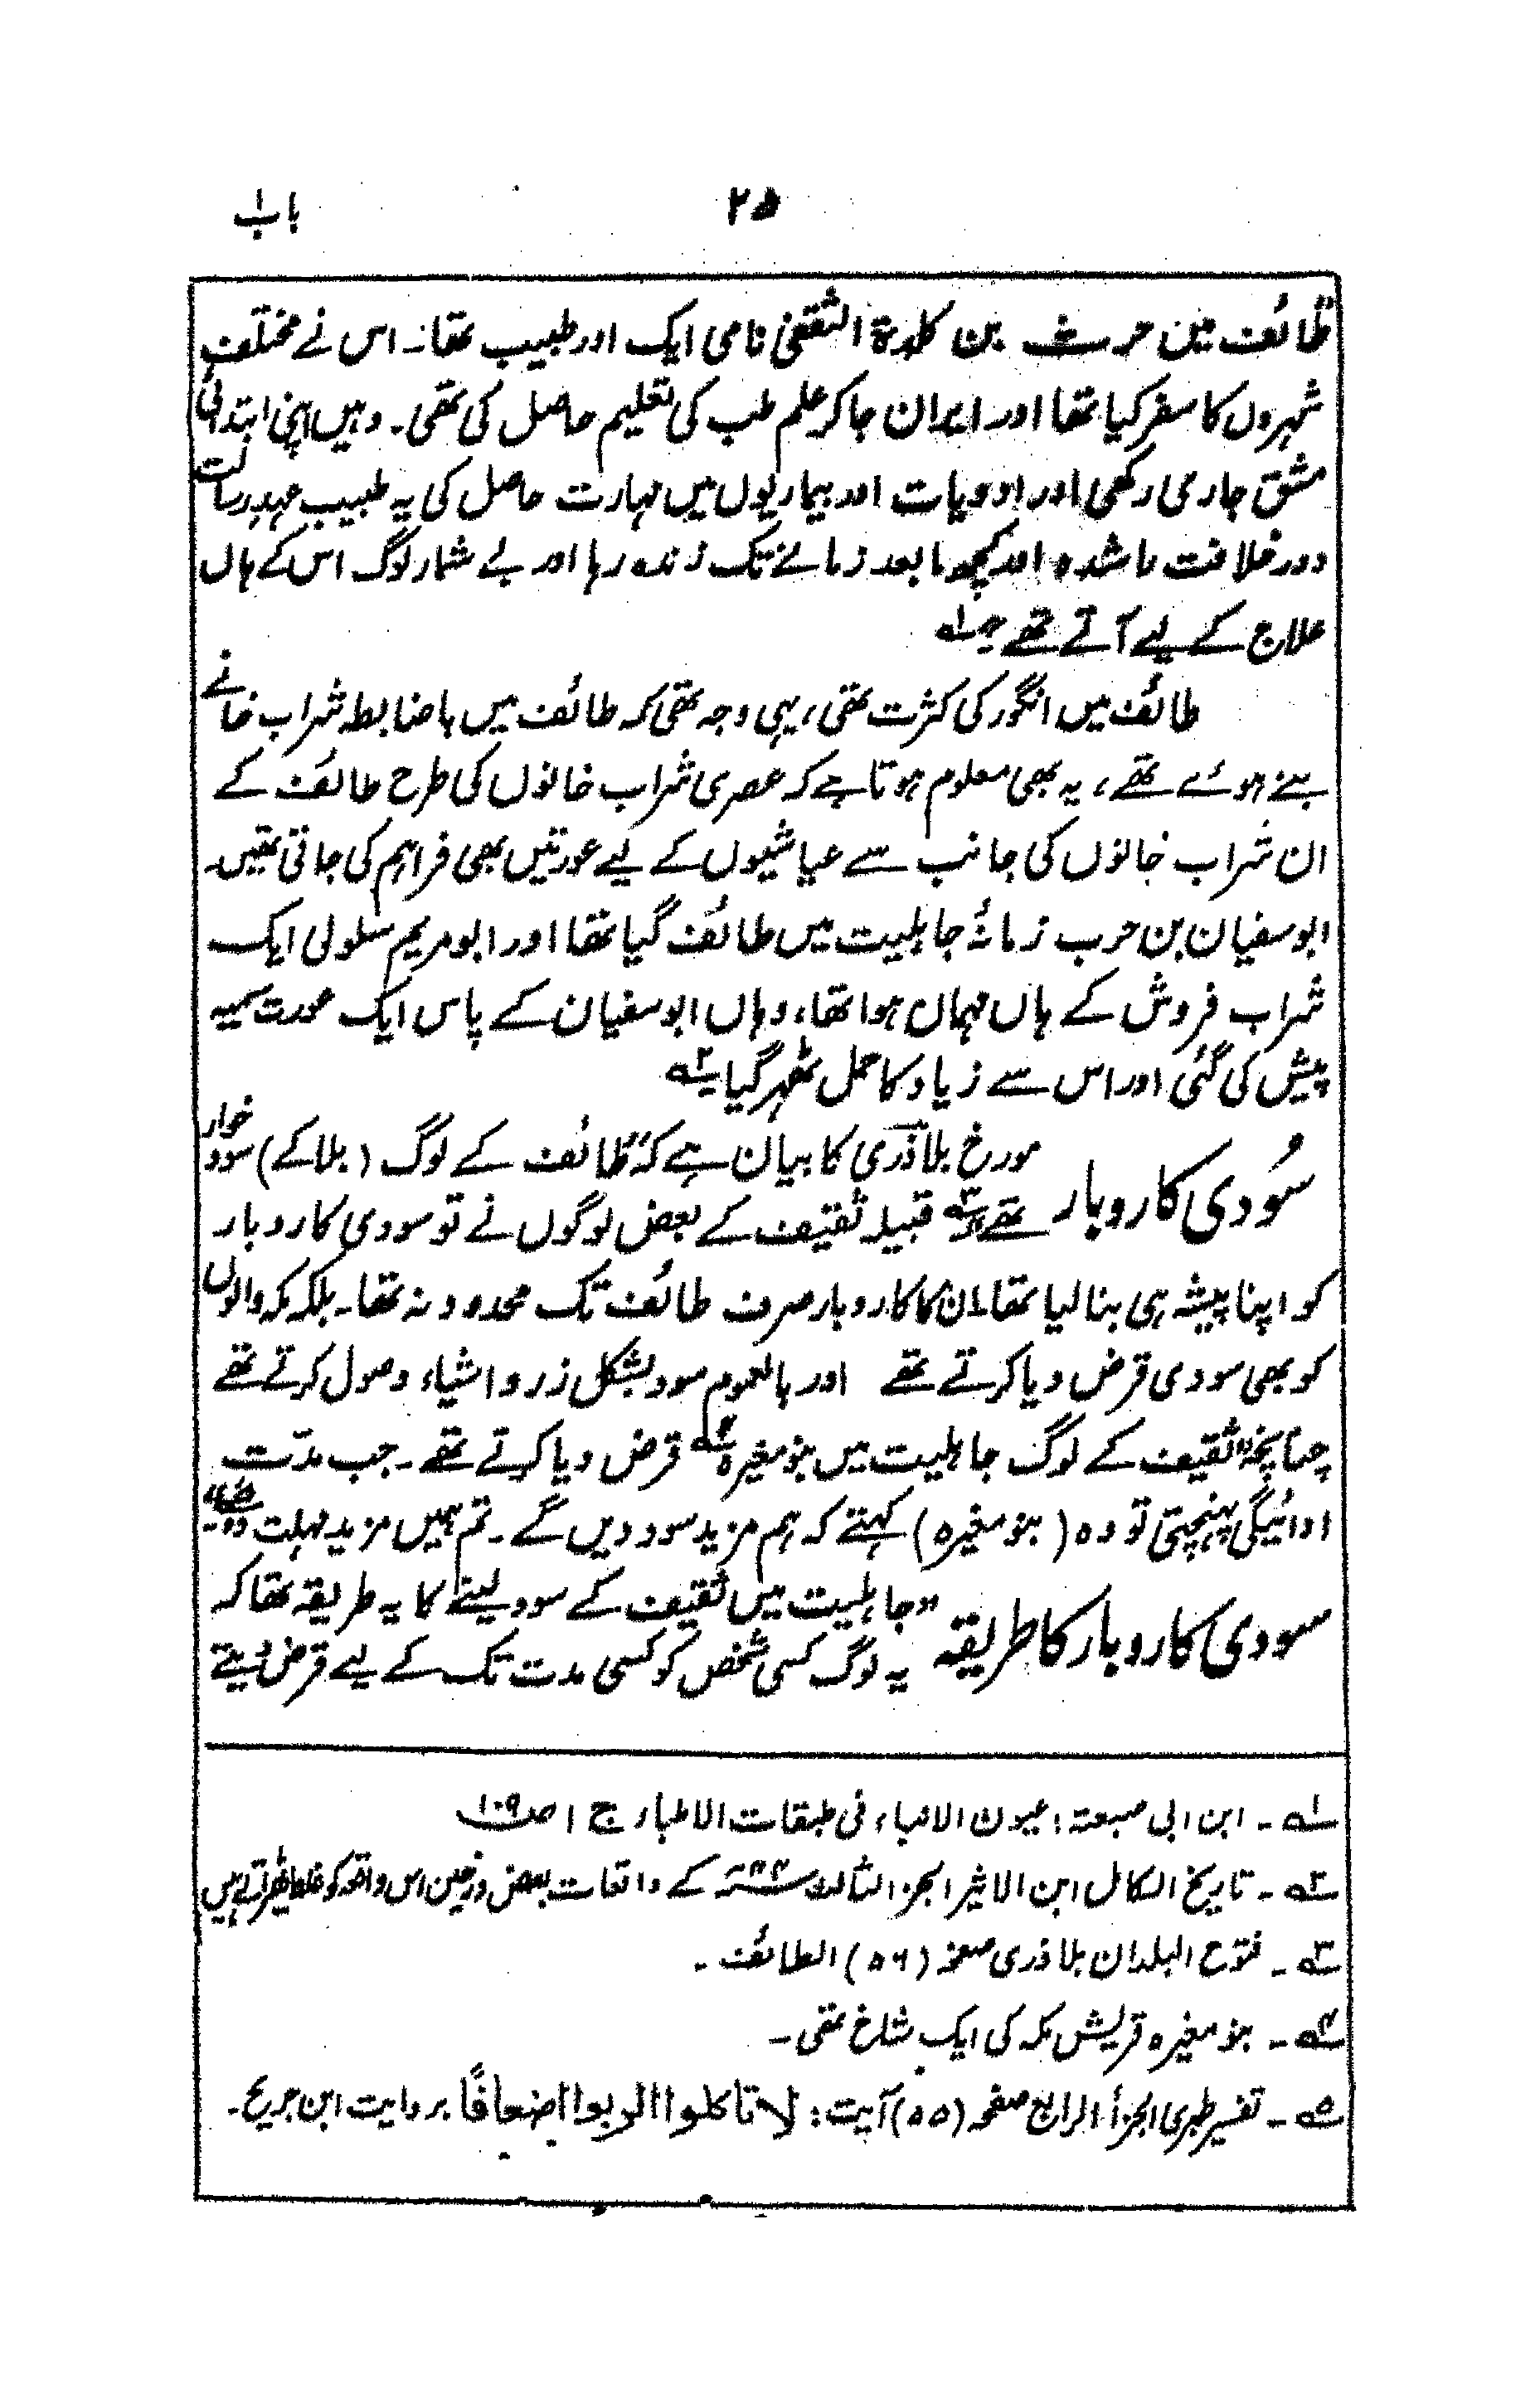 باب ۱
۲۵
طائف میں حرث بن کلدۃ الثقفی نامی ایک اور طبیب تھا۔ اس نے مختلف
شہروں کا سفر کیا تھا اور ایران جا کر علم طب کی تعلیم حاصل کی تھی۔ وہیں اپنی ابتدائی
مشق جاری رکھی اور ادویات اور بیماریوں میں مہارت حاصل کی یہ طبیب عہد رسالت
دور خلافت راشدہ اور کچھ مابعد زمانے تک زندہ رہا اور بے شمار لوگ اس کے ہاں
علاج کے لیے آتے تھے ۱ھ
طائف میں انگور کی کثرت تھی، یہی وجہ تھی کہ طائف میں باضابطہ شراب خانے
بنے ہوئے تھے، یہ بھی معلوم ہوتا ہے کہ عصری شراب خانوں کی طرح طائف کے
ان شراب خانوں کی جانب سے عیاشیوں کے لیے عورتیں بھی فراہم کی جاتی تھیں۔
ابوسفیان بن حرب زمانۂ جاہلیت میں طائف گیا تھا اور ابو مریم سلولی ایک
شراب فروش کے ہاں مہمان ہوا تھا، وہاں ابوسفیان کے پاس ایک عورت سمیہ
پیش کی گئی اور اس سے زیاد کا حمل ٹھہر گیا ۲ھ
سُودی کاروبار
مورخ بلاذری کا بیان ہے کہ "طائف کے لوگ (بلا کے) سود خوار
تھے" ۳ھ قبیلہ ثقیف کے بعض لوگوں نے تو سودی کاروبار
کو اپنا پیشہ ہی بنا لیا تھا ان کا کاروبار صرف طائف تک محدود نہ تھا۔ بلکہ مکہ والوں
کو بھی سودی قرض دیا کرتے تھے اور بالعموم سود بشکل زر و اشیاء وصول کرتے تھے
چنانچہ "ثقیف کے لوگ جاہلیت میں بنو مغیرہ ۴ھ قرض دیا کرتے تھے۔ جب مدّت
ادائیگی پہنچتی تو وہ (بنو مغیرہ) کہتے کہ ہم مزید سود دیں گے۔ تم ہمیں مزید مہلت دو" ۵ھ
سودی کاروبار کا طریقہ
"جاہلیت میں ثقیف کے سود لینے کا یہ طریقہ تھا کہ
یہ لوگ کسی شخص کو کسی مدت تک کے لیے قرض دیتے
۱ھ۔ ابن ابی صبعۃ: عیون الانباء فی طبقات الاطبار ج ۱ ص ۱۰۹
۲ھ۔ تاریخ الکامل ابن الاثیر الجز الثالث کے واقعات بعض مورخین اس واقعہ کو غلط ٹھہراتے ہیں
۳ھ۔ فتوح البلدان بلاذری صفحہ (۵۶) الطائف۔
۴ھ۔ بنو مغیرہ قریش مکہ کی ایک شاخ تھی۔
۵ھ۔ تفسیر طبری الجزأ الرابع صفحہ (۵۵) آیت: لا تاکلوا الربوا اضعافًا بروایت ابن جریج۔